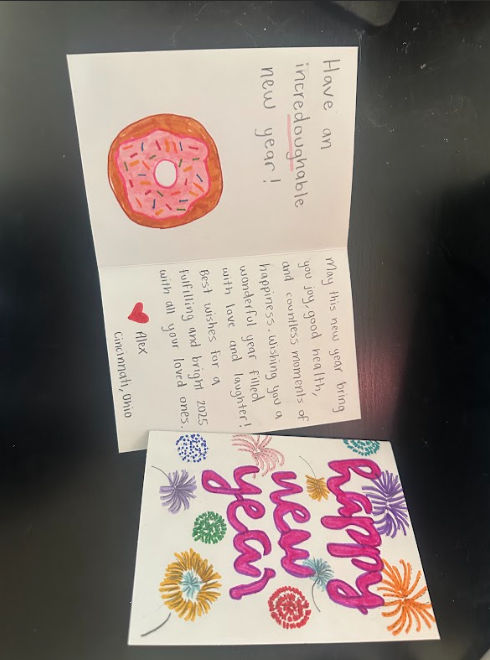 Have an
incredoughable
new year!
May this new year bring
you joy, good health,
and countless moments of
happiness. Wishing you a
wonderful year filled
with love and laughter!
Best wishes for a
fulfilling and bright 2025
with all your loved ones.
Alex
Cincinnati, Ohio
happy
new
year